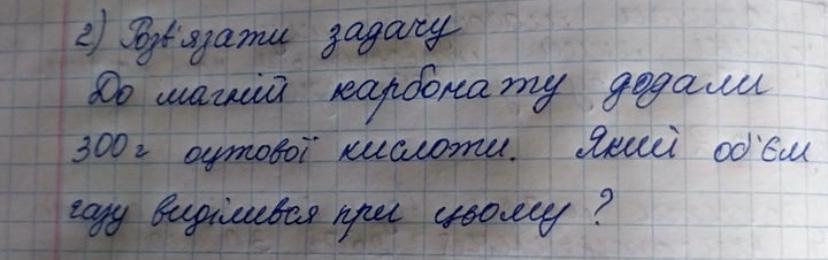 2) Розв'язати задачу
До магній карбонату додали
300г оцтової кислоти. Який об'єм
газу виділився при цьому?